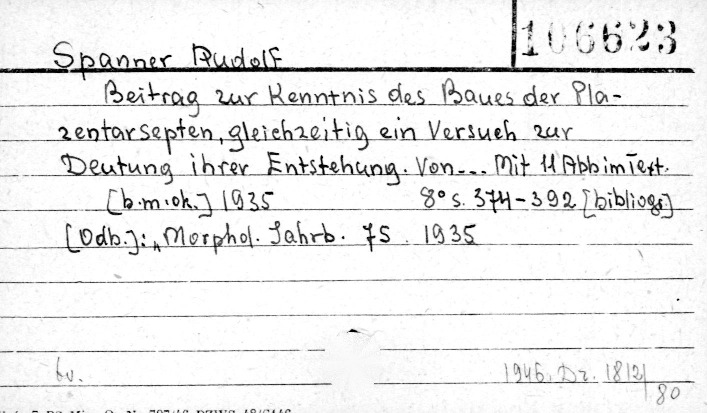 106623
Spanner Rudolf
Beitrag zur Kenntnis des Baues der Pla-
zentarsepten, gleichzeitig ein Versuch zur
Deutung ihrer Entstehung. Von... Mit 11 Abb im Text.
[b.m.ok.] 1935 8° s. 374-392 [bibliogr.]
[Odb.]: „Morphol. Jahrb. 75. 1935
bv.
1946. Dz. 1812/
80